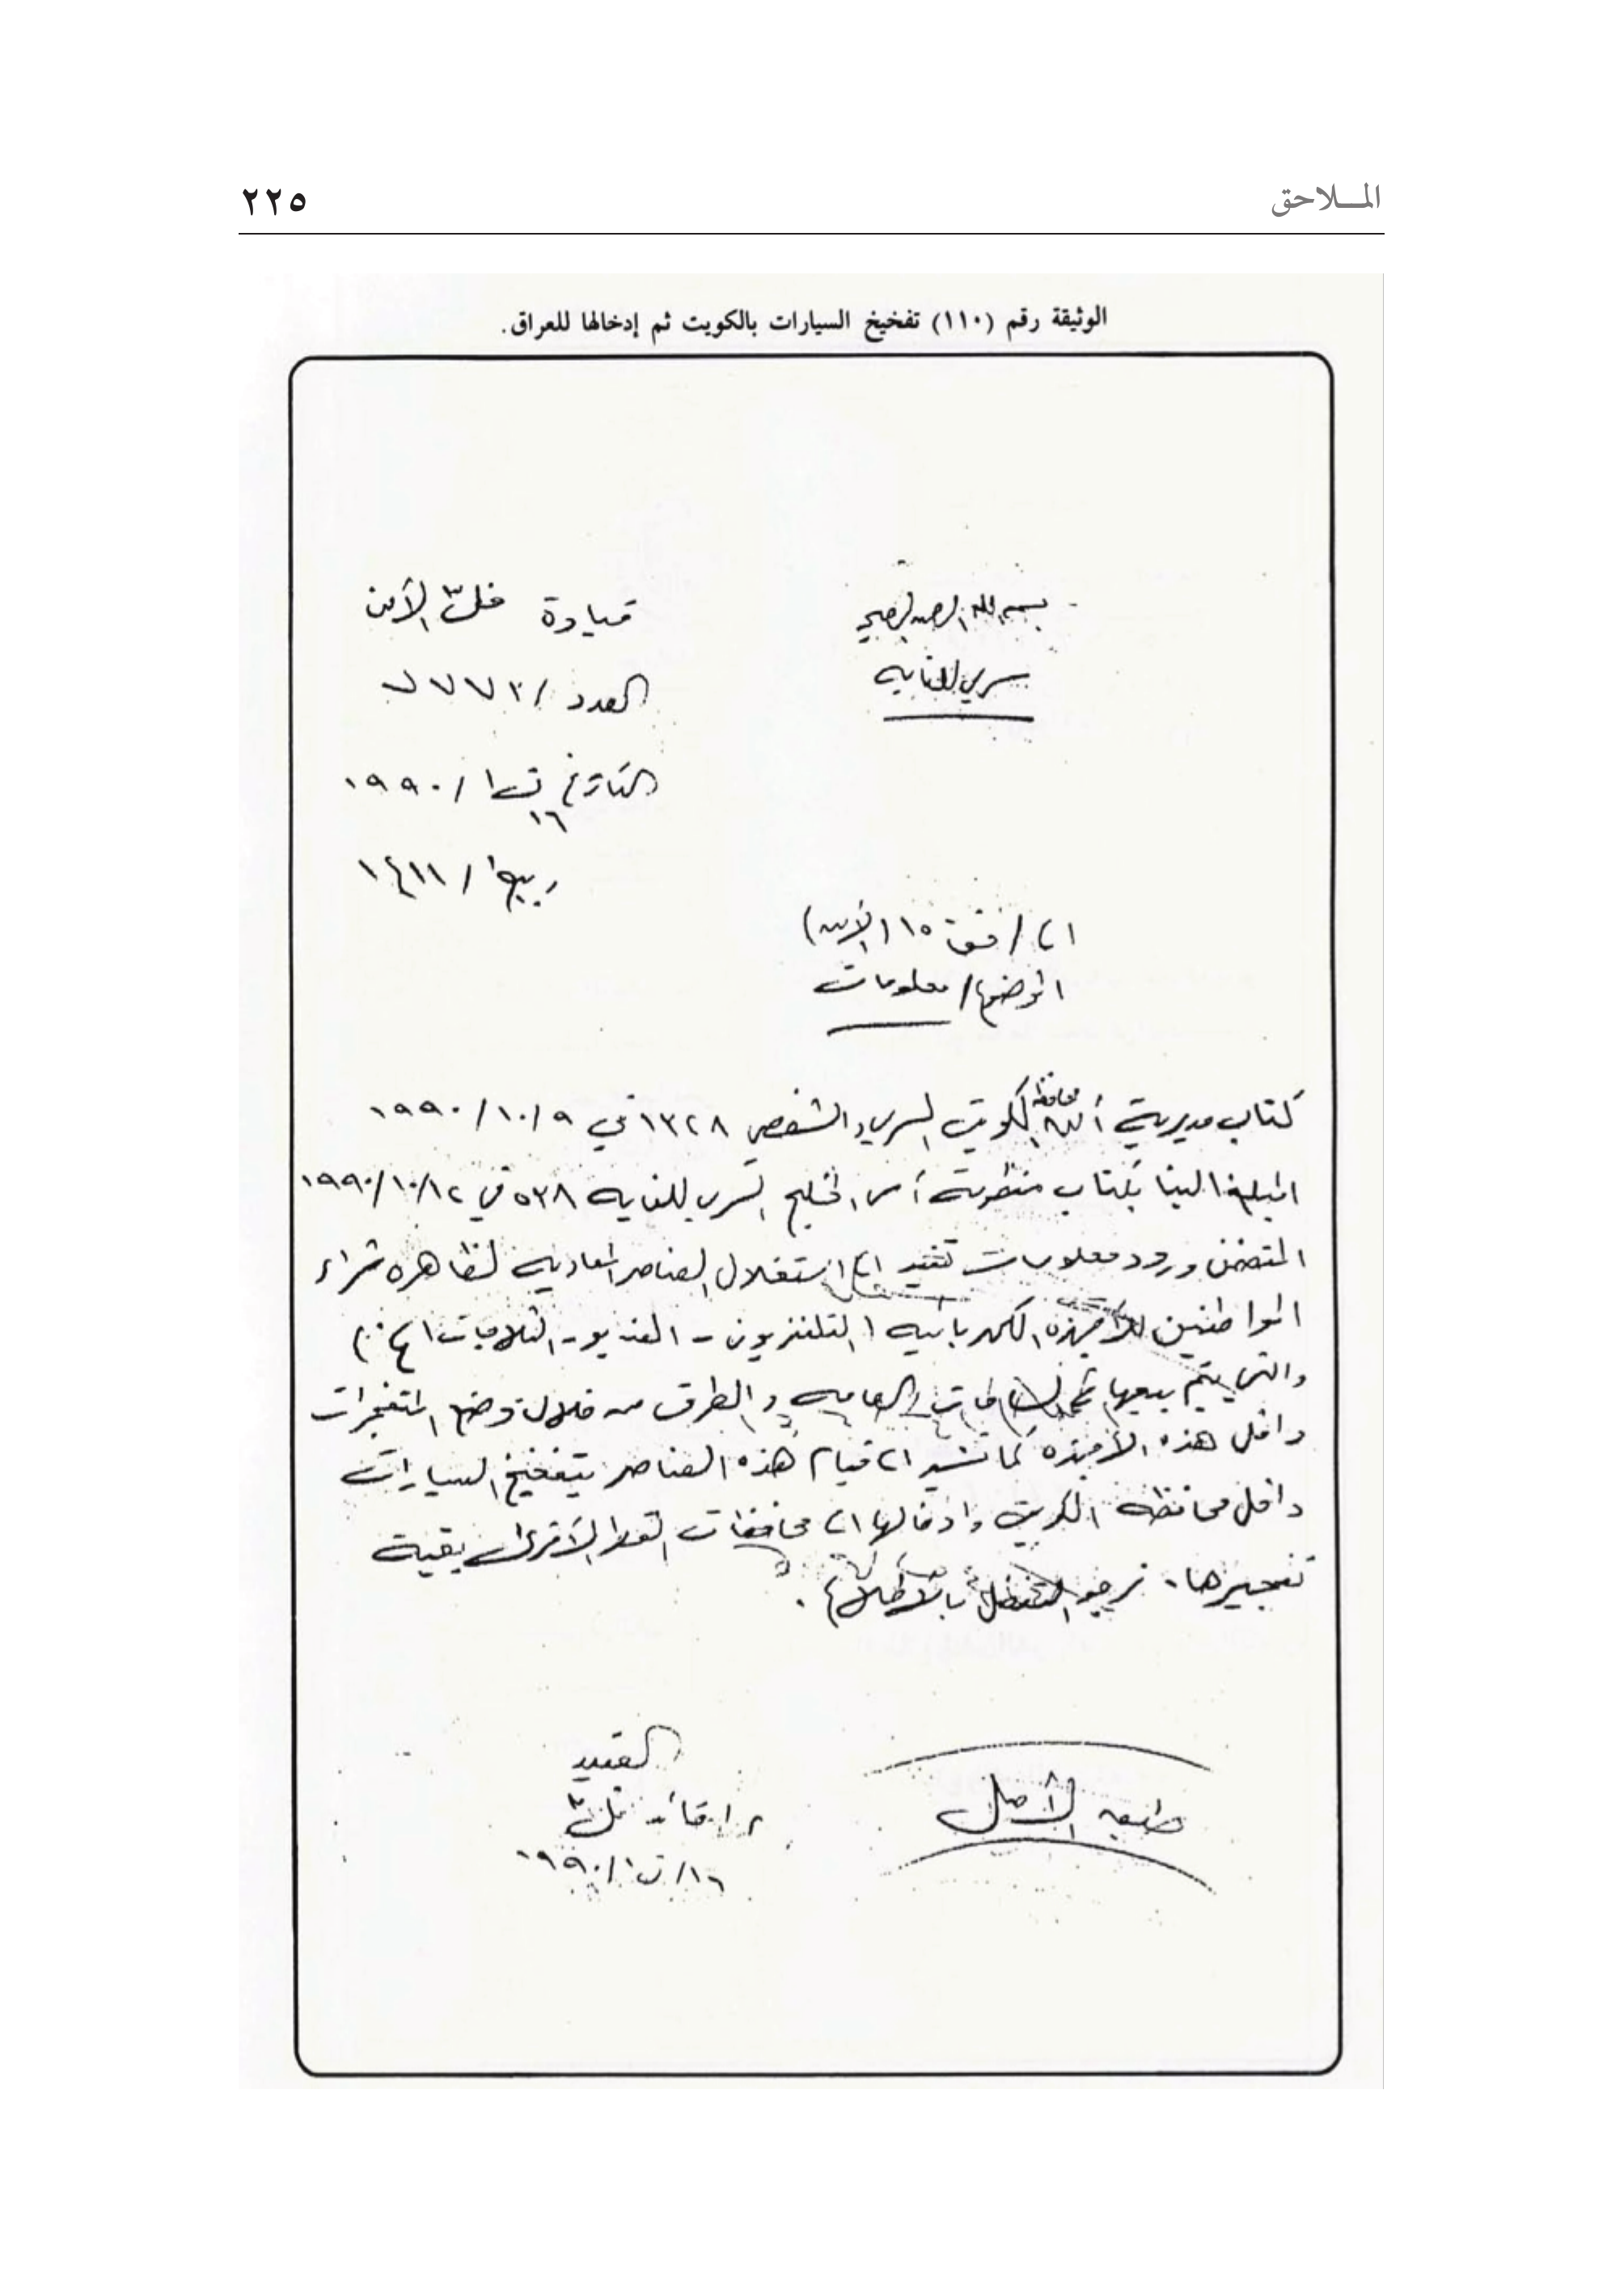 الملاحق
٢٢٥
الوثيقة رقم (١١٠) تفخيخ السيارات بالكويت ثم إدخالها للعراق.
بسم الله الرحمن الرحيم
سري للغاية
قيادة الأمن
العدد / ٧٧٧٣
التاريخ ت١ / ١٩٩٠
١٦
ربيع١ / ١٤١١
الى / ١٥ (الامن)
الموضوع / معلومات
كتاب مديرية أمن محافظة الكويت السري والشخصي ١٣٢٨ في ١٩٩٠/١٠/٩
المبلغ الينا بكتاب منظومة أمن الخليج السري للغايه ٥٣٨ في ١٩٩٠/١٠/١٢
المتضمن ورود معلومات تفيد الى استغلال العناصر المعاديه لظاهره شراء
المواطنين للأجهزه الكهربائيه (التلفزيون - الفديو - الثلاجات الخ)
والتي يتم بيعها في الساحات العامه والطرق من خلال وضع المتفجرات
داخل هذه الأجهزه كما تشير الى قيام هذه العناصر بتفخيخ السيارات
داخل محافظة الكويت وادخالها الى محافظات القطر الأخرى بغية
تفجيرها. نرجو التفضل بالاطلاع.
العقيد
قائد
١٦/ت١/١٩٩٠
طبعه الأصل